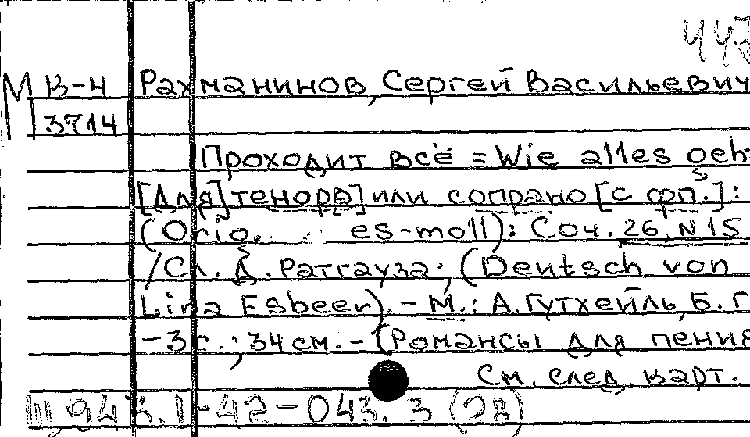 447
М В-4 Рахманинов, Сергей Васильевич
3714
Проходит всё = Wie alles geht
[Для] тенора[] или сопрано [с фп.]:
(Orig. es-moll): Соч. 26, N 15
/Сл. Д. Ратгауза; (Deutsch von
Lina Esbeer). - М.: А. Гутхейль, Б. Г.
- 3 с.; 34 см. - (Романсы для пения
См. след. карт.
943.1-42-043.3(2R)